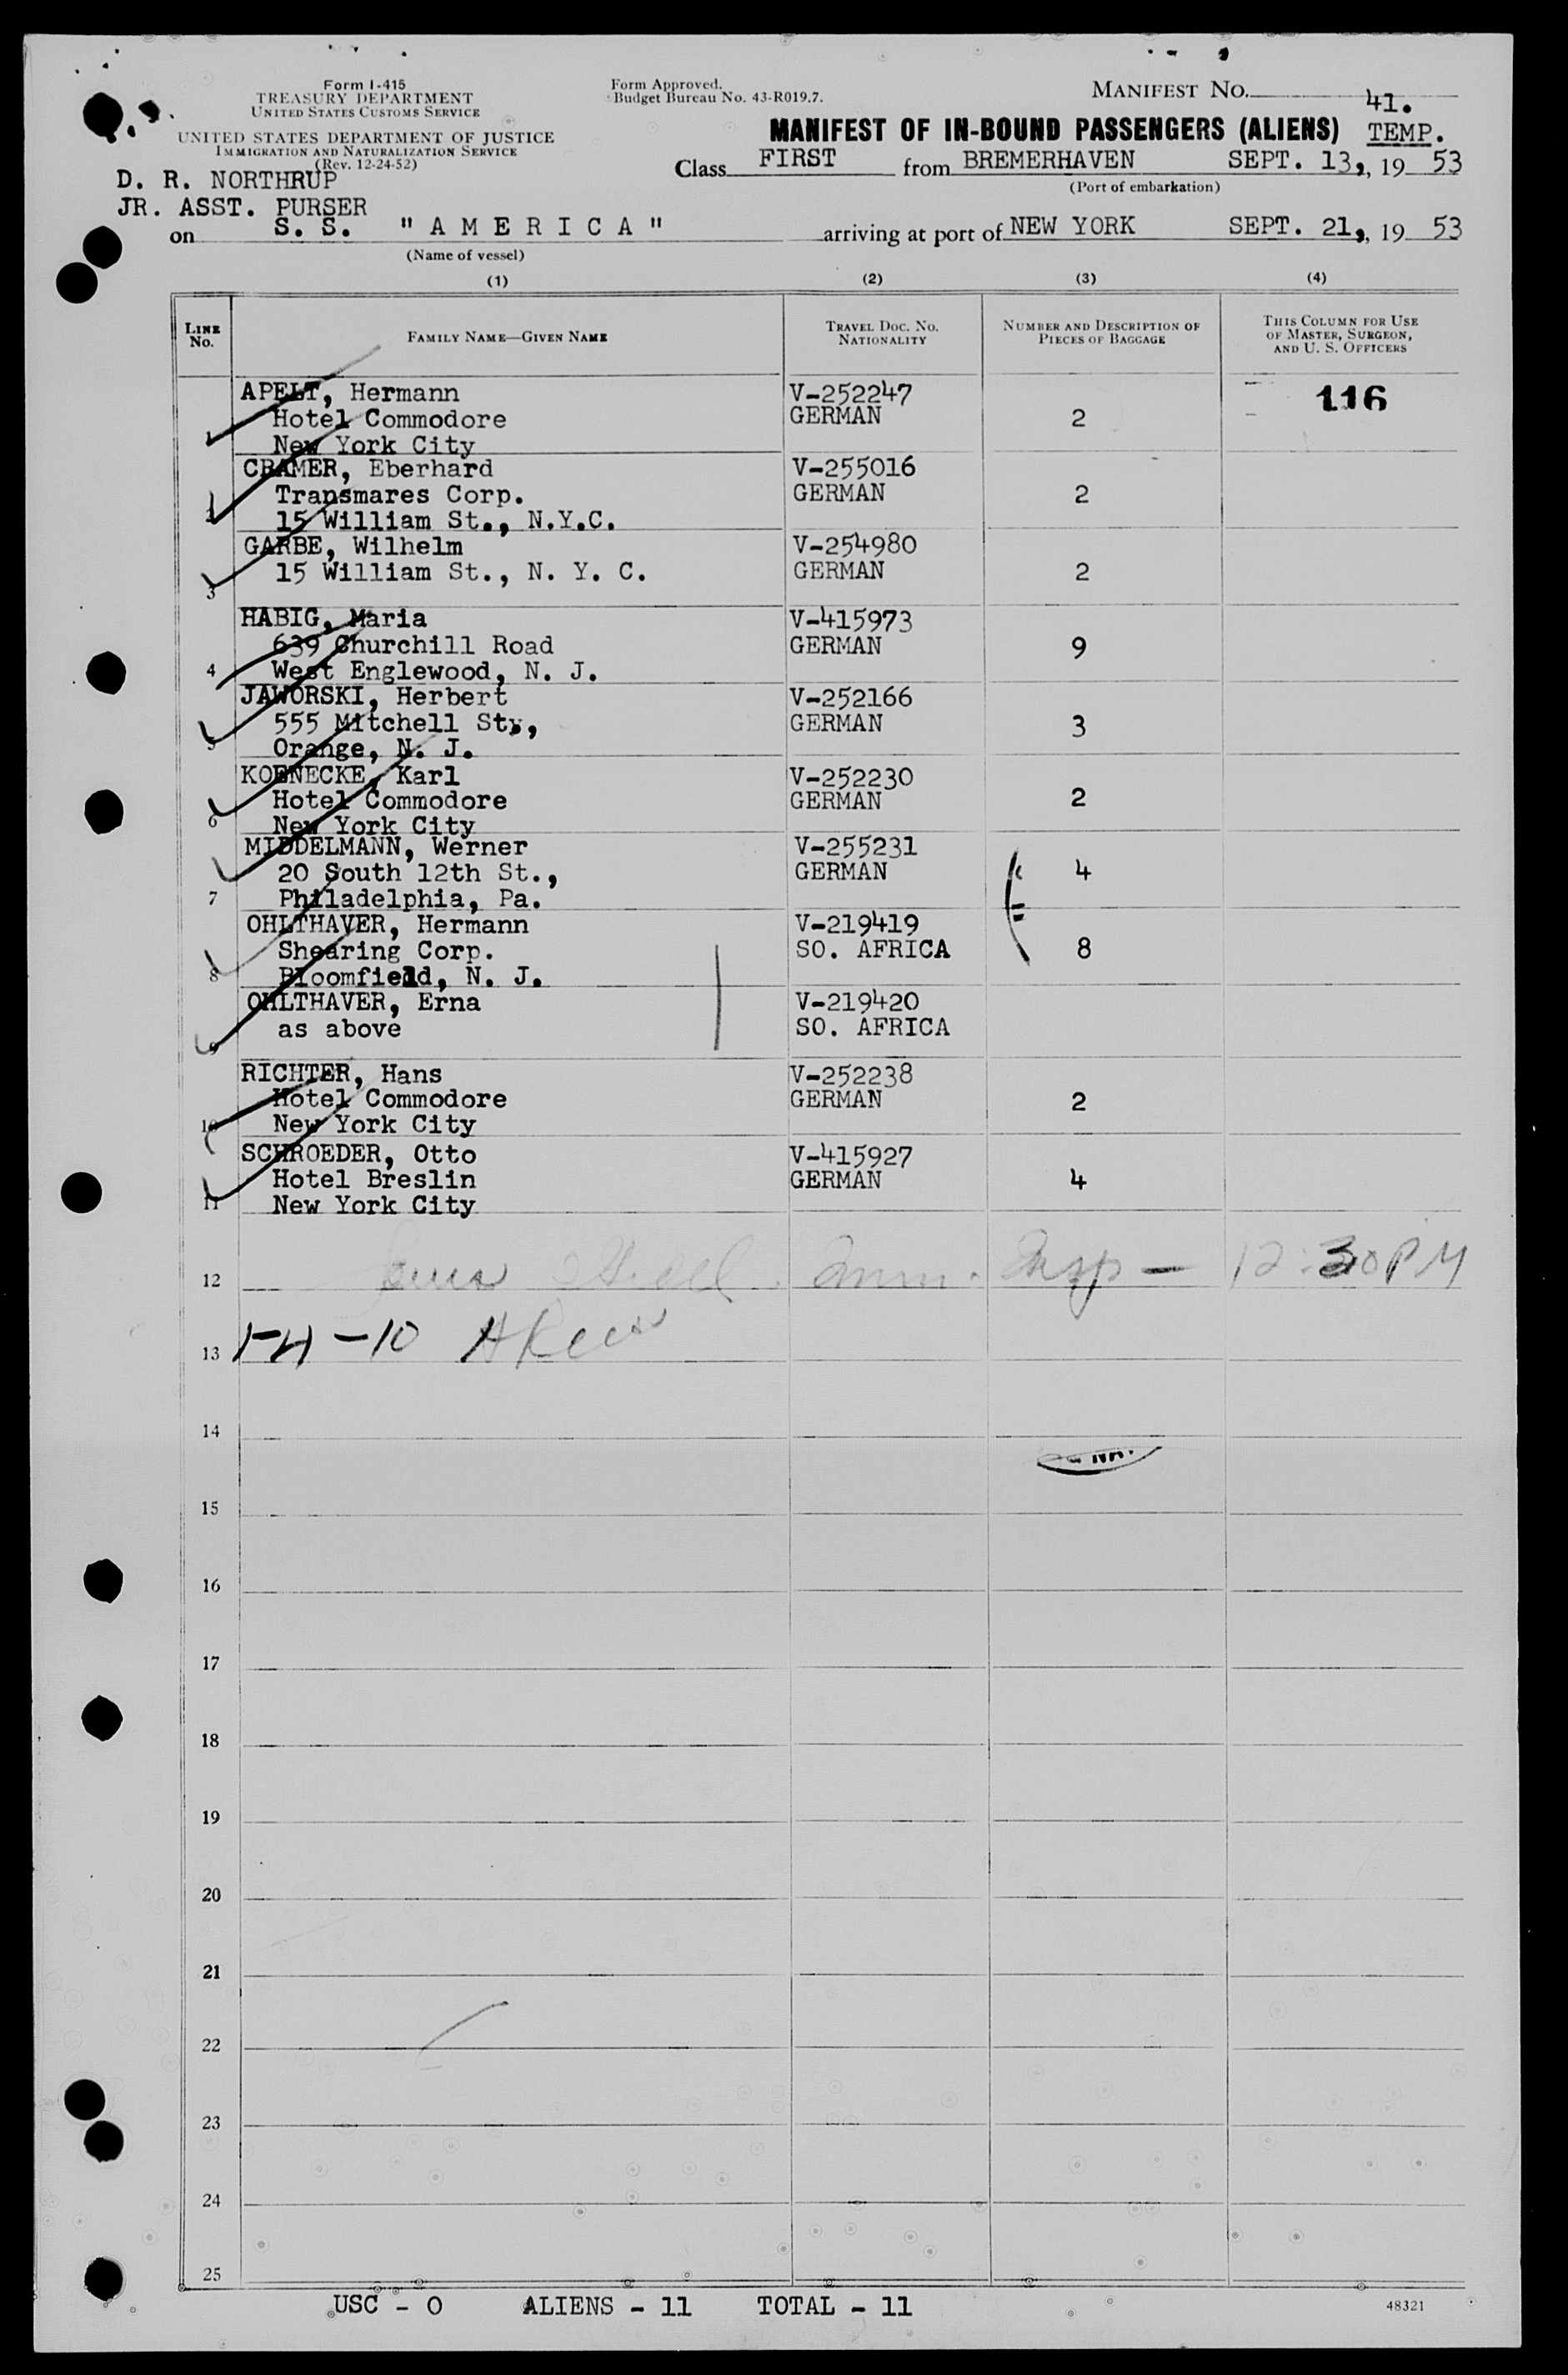 Form I-415
TREASURY DEPARTMENT
UNITED STATES CUSTOMS SERVICE
UNITED STATES DEPARTMENT OF JUSTICE
IMMIGRATION AND NATURALIZATION SERVICE
(Rev. 12-24-52)
Form Approved.
Budget Bureau No. 43-R019.7.
MANIFEST NO.
41.
MANIFEST OF IN-BOUND PASSENGERS (ALIENS) TEMP.
D. R. NORTHRUP
JR. ASST. PURSER
Class FIRST from BREMERHAVEN SEPT. 13,, 19 53
(Port of embarkation)
on S. S. "A M E R I C A" arriving at port of NEW YORK SEPT. 21,, 19 53
(Name of vessel)
(1) (2) (3) (4)
LINE NO.
FAMILY NAME—GIVEN NAME
TRAVEL DOC. NO. NATIONALITY
NUMBER AND DESCRIPTION OF PIECES OF BAGGAGE
THIS COLUMN FOR USE OF MASTER, SURGEON, AND U. S. OFFICERS
APELT, Hermann V-252247 116
1 Hotel Commodore GERMAN 2
New York City
CRAMER, Eberhard V-255016
Transmares Corp. GERMAN 2
2 15 William St., N.Y.C.
GARBE, Wilhelm V-254980
15 William St., N. Y. C. GERMAN 2
3
HABIG, Maria V-415973
639 Churchill Road GERMAN 9
4 West Englewood, N. J.
JAWORSKI, Herbert V-252166
555 Mitchell St., GERMAN 3
5 Orange, N. J.
KOENECKE, Karl V-252230
Hotel Commodore GERMAN 2
6 New York City
MIDDELMANN, Werner V-255231
20 South 12th St., GERMAN 4
7 Philadelphia, Pa.
OHLTHAVER, Hermann V-219419
Shearing Corp. SO. AFRICA 8
8 Bloomfield, N. J.
OHLTHAVER, Erna V-219420
as above SO. AFRICA
9
RICHTER, Hans V-252238
Hotel Commodore GERMAN 2
10 New York City
SCHROEDER, Otto V-415927
Hotel Breslin GERMAN 4
11 New York City
12 Imm. Insp — 12:30 PM
13
14
15
16
17
18
19
20
21
22
23
24
25
USC - 0 ALIENS - 11 TOTAL - 11
48321